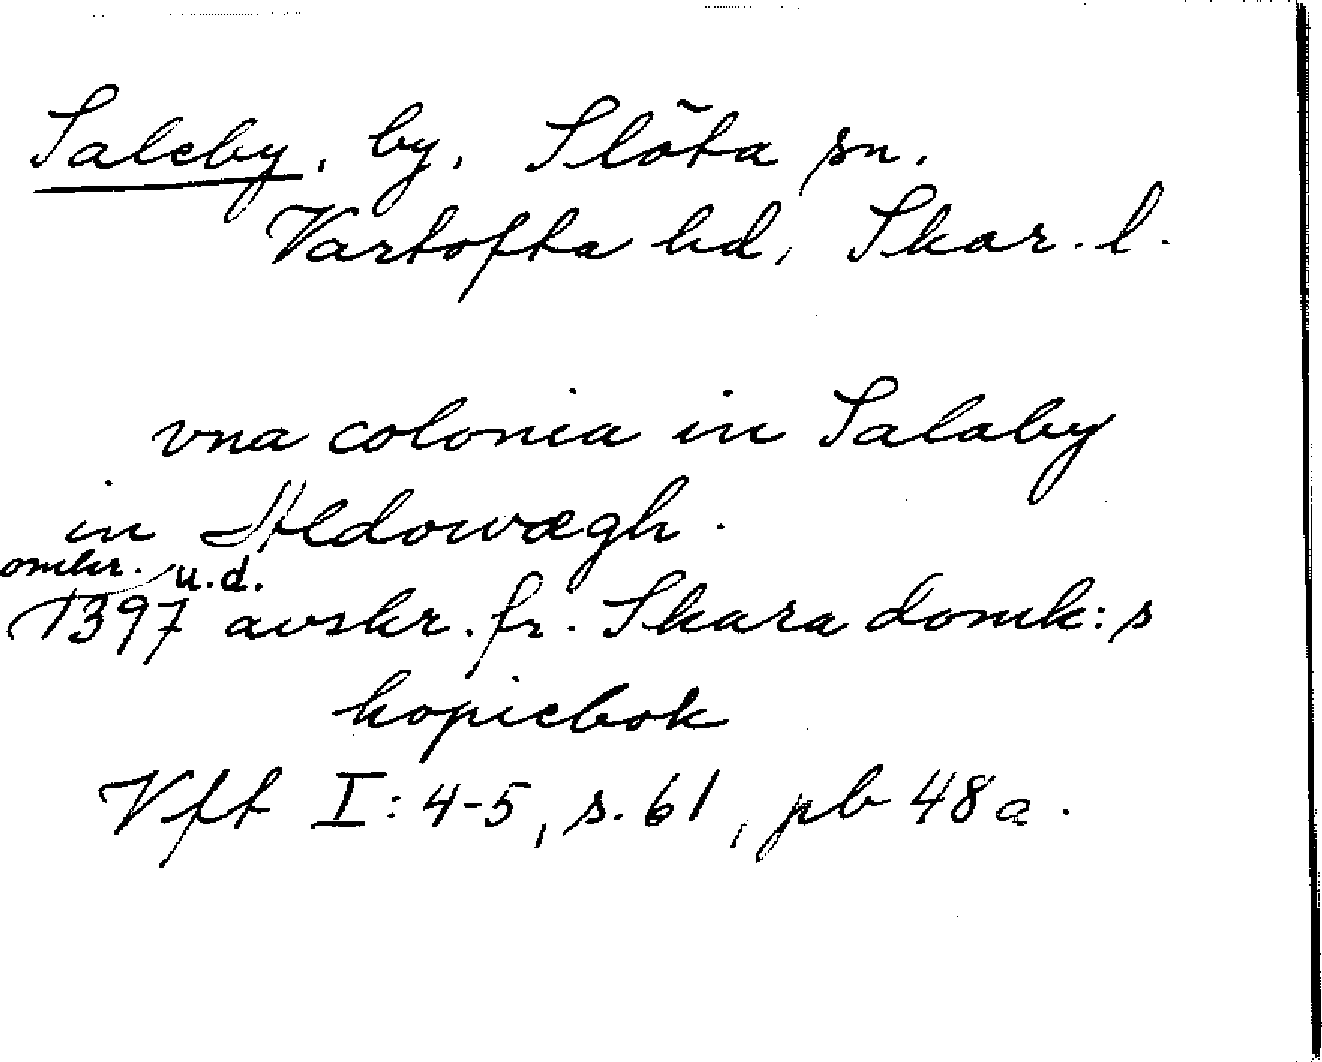 Saleby, by, Slöta sn.
Vartofta hd, Skar. l.
vna colonia in Salaby
in Aldowægh.
omkr. u.d.
1397 avskr. fr. Skara domk:s
kopiebok
Vft I: 4-5, s. 61, pb 48a.